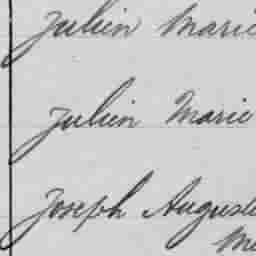 Julien Marie
Julien Marie
Joseph August